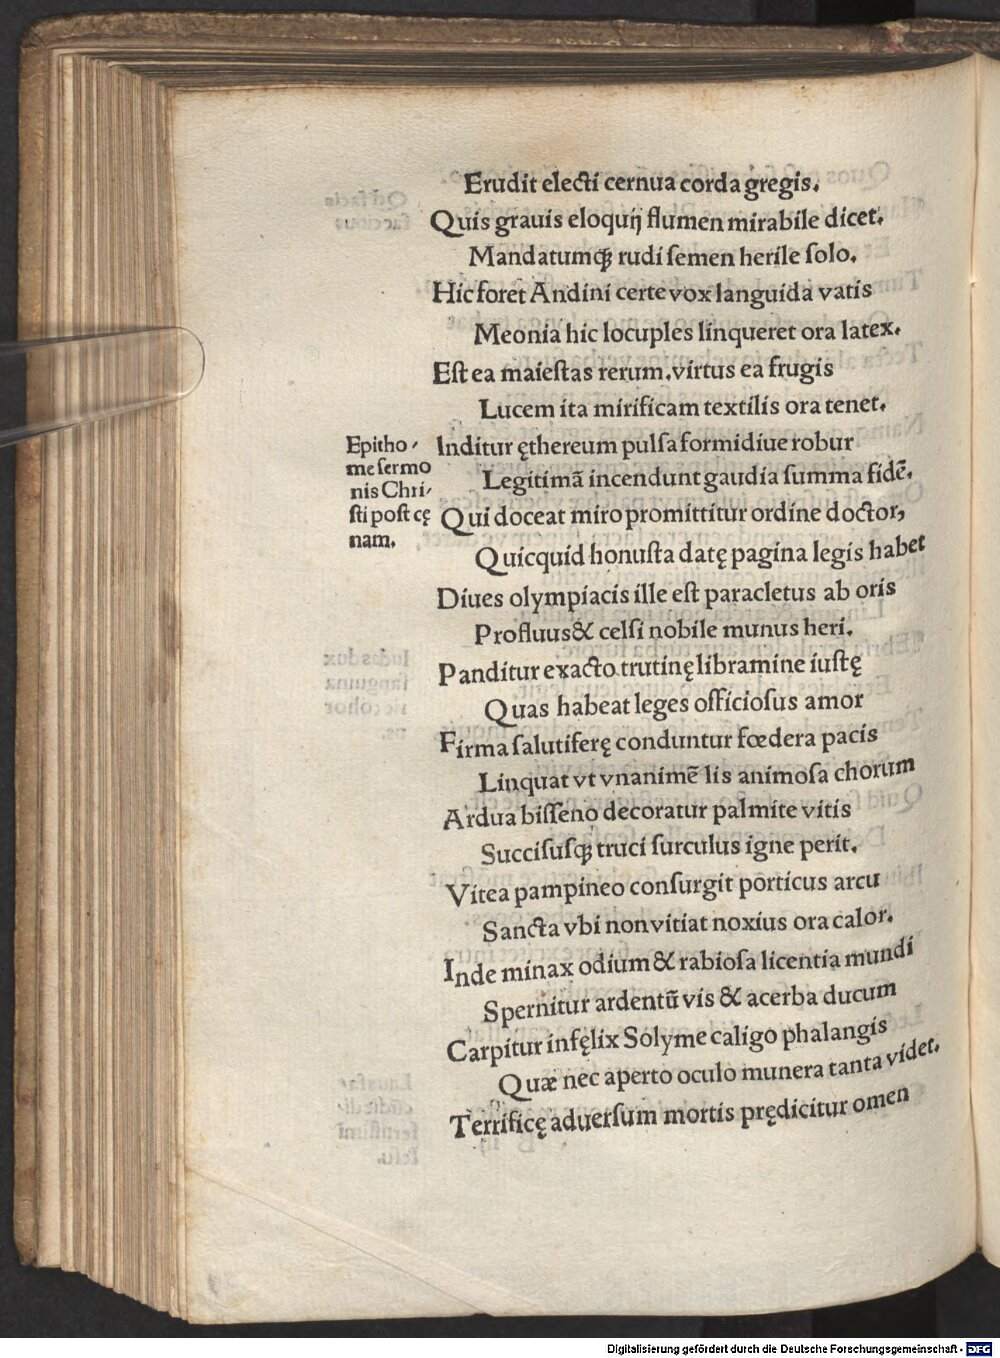 Erudit electi cernua corda gregis.
Quis grauis eloquij flumen mirabile dicet.
Mandatumqꝫ rudi semen herile solo.
Hic foret Andini certe vox languida vatis
Meonia hic locuples linqueret ora latex.
Est ea maiestas rerum.virtus ea frugis
Lucem ita mirificam textilis ora tenet.
Epitho-
me sermo
nis Chri-
sti post cę
nam.
Inditur ęthereum pulsa formidiue robur
Legitimā incendunt gaudia summa fidē.
Qui doceat miro promittitur ordine doctor,
Quicquid honusta datę pagina legis habet
Diues olympiacis ille est paracletus ab oris
Profluus & celsi nobile munus heri.
Panditur exacto trutinę libramine iustę
Quas habeat leges officiosus amor
Firma salutiferę conduntur fœdera pacis
Linquat vt vnanimē lis animosa chorum
Ardua bisseno decoratur palmite vitis
Succisusqꝫ truci surculus igne perit.
Vitea pampineo consurgit porticus arcu
Sancta vbi non vitiat noxius ora calor.
Inde minax odium & rabiosa licentia mundi
Spernitur ardentū vis & acerba ducum
Carpitur infęlix Solyme caligo phalangis
Quæ nec aperto oculo munera tanta videt.
Terrificę aduersum mortis prędicitur omen
Digitalisierung gefördert durch die Deutsche Forschungsgemeinschaft - DFG